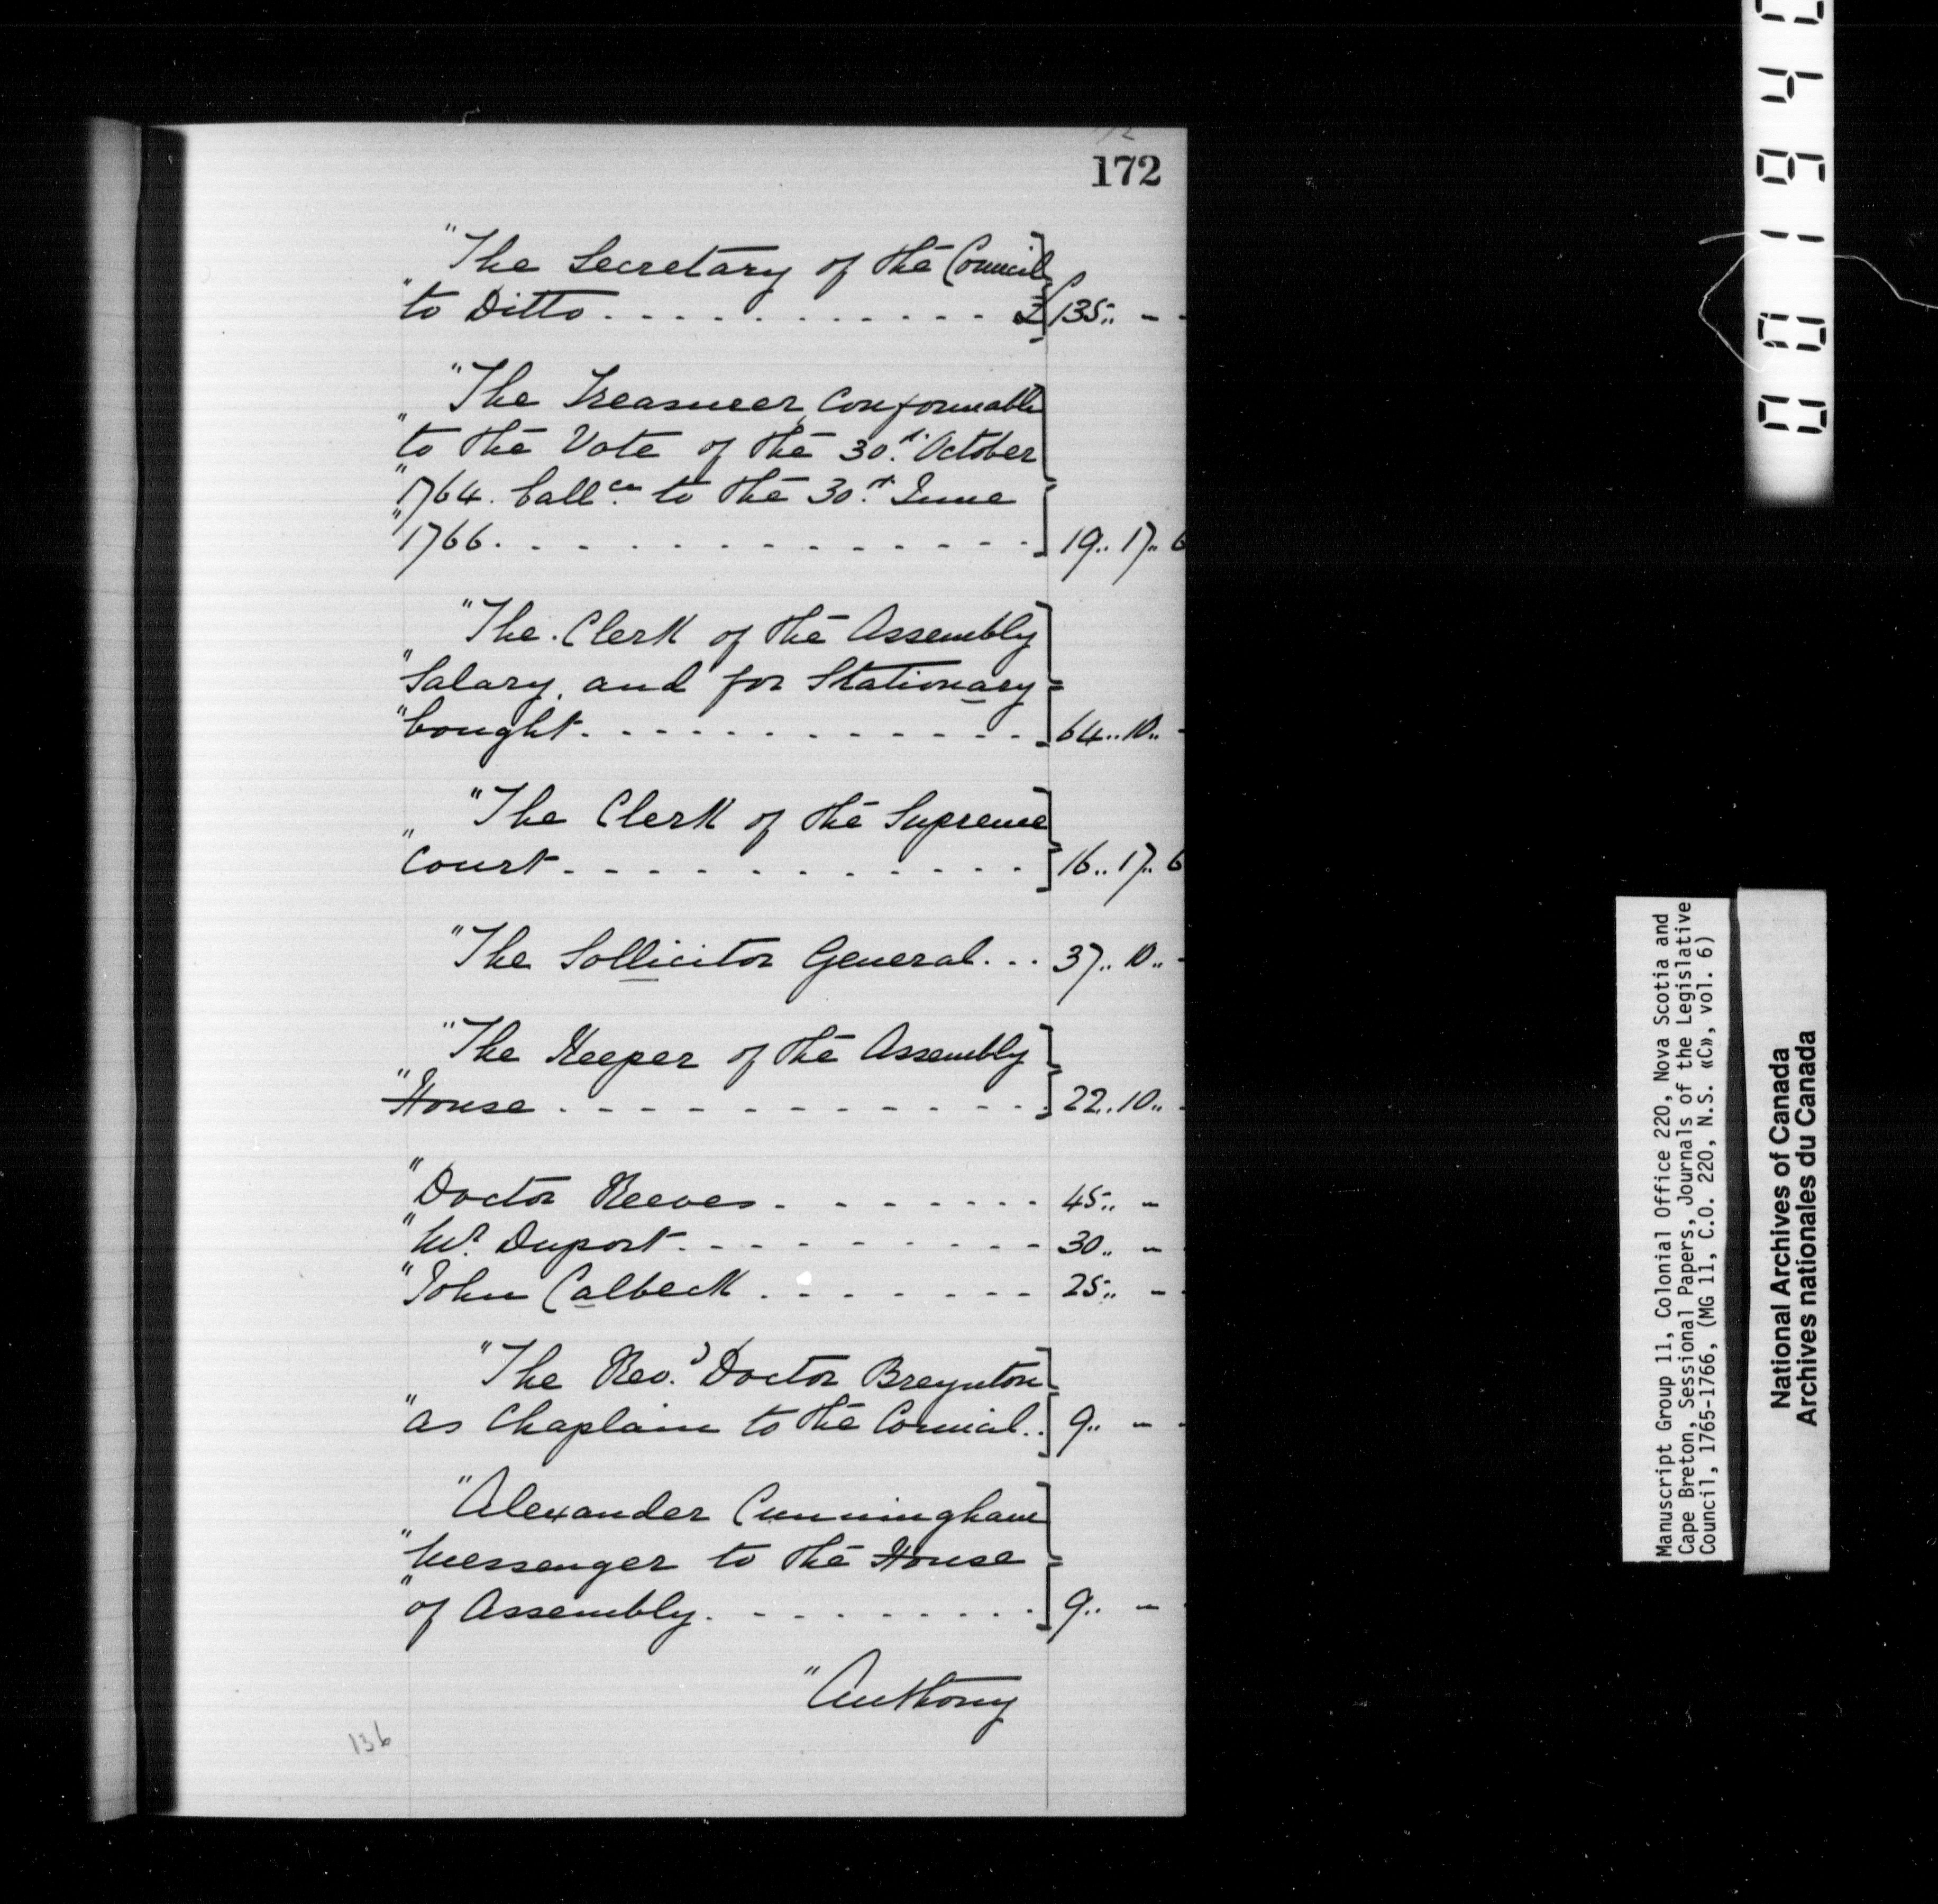 172
"The Secretary of the Council
"to Ditto . . . . . . . . . . . . £ 135,, - -
"The Treasurer, Conformable
"to the Vote of the 30.th October
"1764. ball.ce to the 30.th June
"1766. . . . . . . . . . . . . . . 19,, 17,, 6
"The Clerk of the Assembly
"Salary, and for Stationary
"bought. . . . . . . . . . . . . 64,, 10,, -
"The Clerk of the Supreme
"Court . . . . . . . . . . . . . 16,, 17,, 6
"The Sollicitor General . . . 37,, 10,, -
"The Keeper of the Assembly
"House . . . . . . . . . . . . . 22,, 10,, -
"Doctor Reeves . . . . . . . . 45,, -
"Mr. Duport . . . . . . . . . . 30,, - -
"John Calbeck . . . . . . . . 25,, - -
"The Rev.d Doctor Breynton
"as Chaplain to the Council . . 9,, - -
"Alexander Cunningham
"Messenger to the House
"of Assembly. . . . . . . . . . 9,, - -
"Anthony
136
Manuscript Group 11, Colonial Office 220, Nova Scotia and
Cape Breton, Sessional Papers, Journals of the Legislative
Council, 1765-1766, (MG 11, C.O. 220, N.S. «C», vol. 6)
National Archives of Canada
Archives nationales du Canada